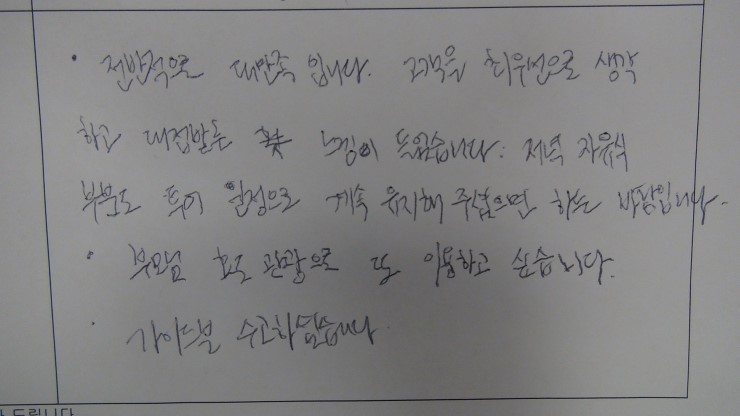 · 전반적으로 대만족 입니다. 고객을 최우선으로 생각
하고 대접받는 느낌이 드었습니다. 저녁 자유식
부분도 투어 일정으로 계속 유지해 주셨으면 하는 바람입니다.
· 부모님 효도 관광으로 또 이용하고 싶습니다.
· 가이드분 수고하셨습니다
드립니다